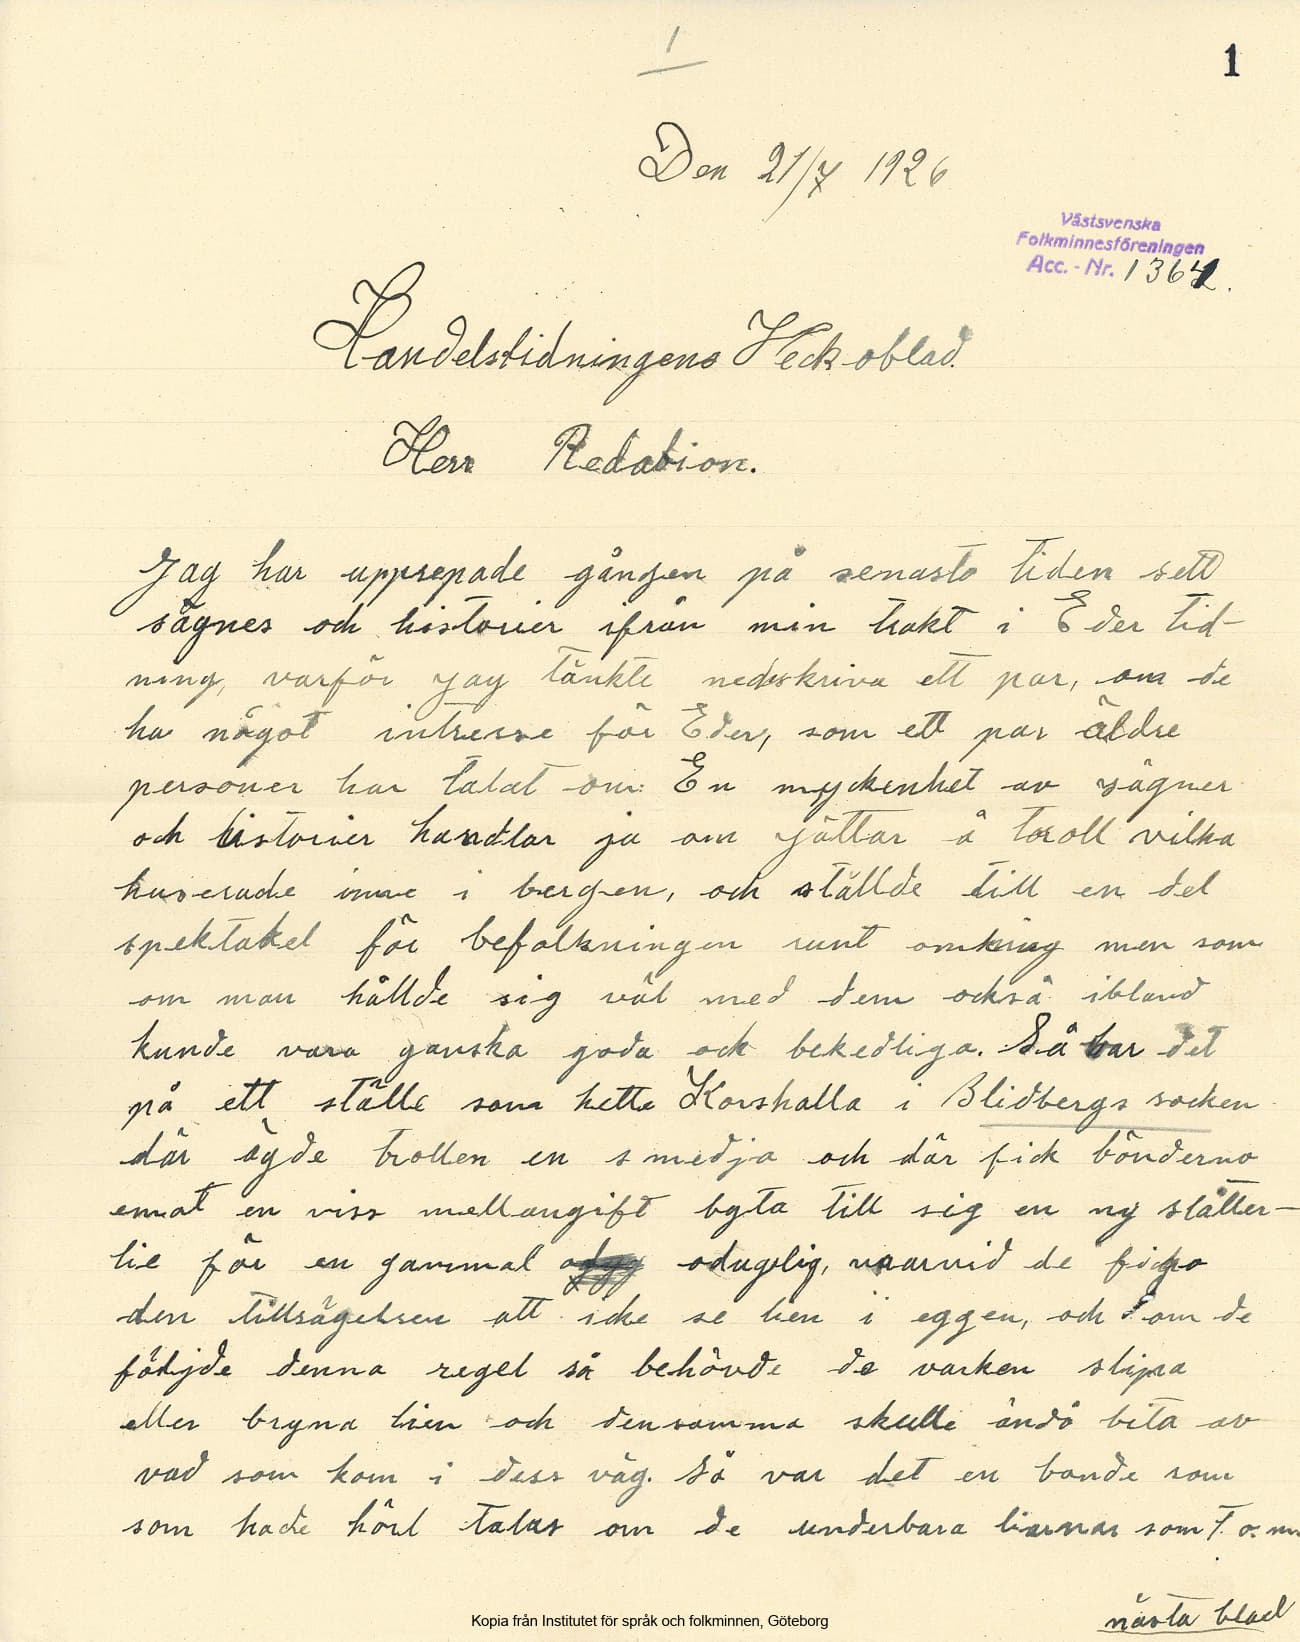 1
1
Den 21/7 1926
Västsvenska
Folkminnesföreningen
Acc. - Nr. 1364
Handelstidningens Veckoblad.
Herr Redation.
Jag har upprepade gången på senasto tiden sett
sägnes och historier ifrån min trakt i Eder tid-
ning, varför jag tänkte nedskriva ett par, om de
ha något intresse för Eder, som ett par äldre
personer har talat om. En myckenhet av sägner
och historier handlar ju om jättar å troll vilka
huserade inne i bergen, och ställde till en del
spektakel för befolkningen runt omkring men som
om man hållde sig väl med dem också ibland
kunde vara ganska goda och bekedliga. Så var det
på ett ställe som hette Korshalla i Blidbergs socken
där ägde trollen en smedja och där fick bönderna
emot en viss mellangift byta till sig en ny slåtter-
lie för en gammal odugelig, vaarvid de fingo
den tillsägelsen att icke se lien i eggen, och som de
földjde denna regel så behövde de varken slipa
eller bryna lien och densamma skulle ändå bita av
vad som kom i dess väg. Så var det en bonde som
som hade hört talas om de underbara liarnar som t. o. m.
nästa blad
Kopia från Institutet för språk och folkminnen, Göteborg